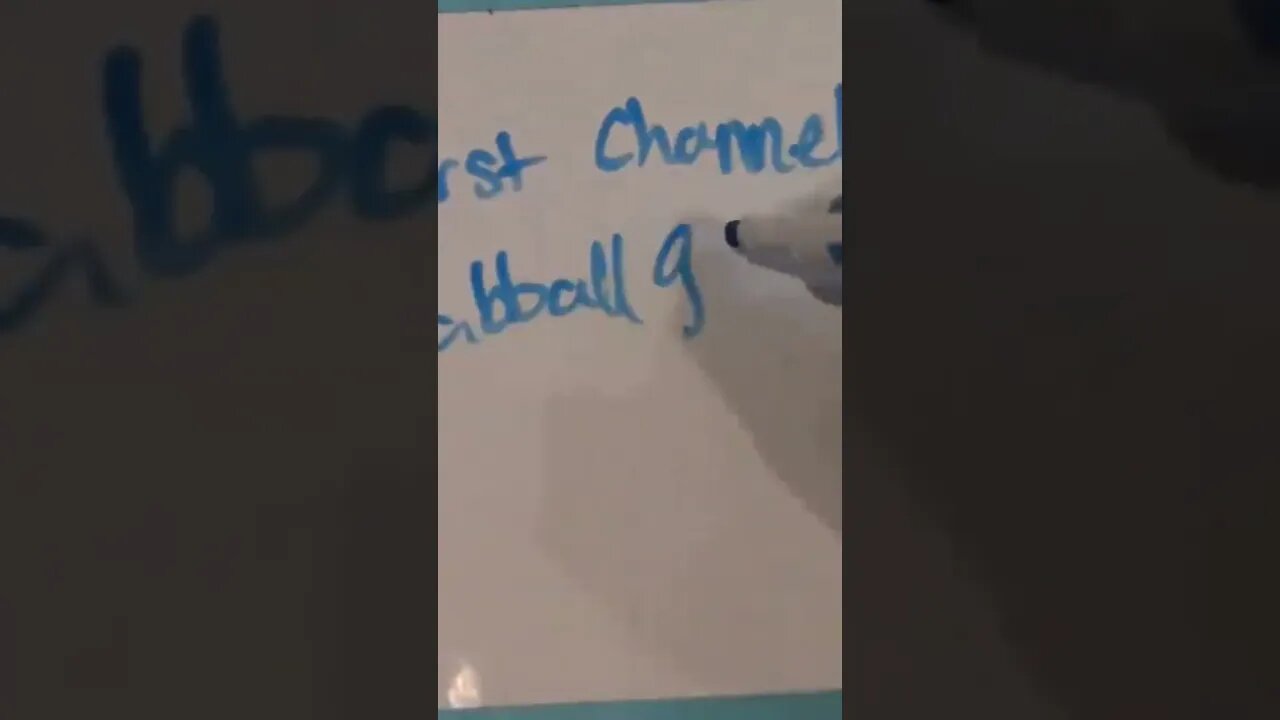 rst Channel
abball g